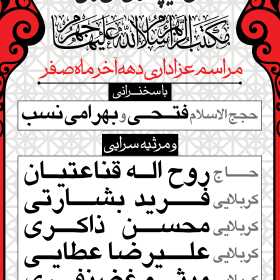 مکتب الزهرا سلام الله علیها جهرم
مراسم عزاداری دهه آخر ماه صفر
باسخنرانی
حجج الاسلام فتحی و بهرامی نسب
و مرثیه سرایی
حاج روح اله قناعتیان
کربلایی فرید بشارتی
کربلایی محسن ذاکری
کربلایی علیرضا عطایی
کربلایی